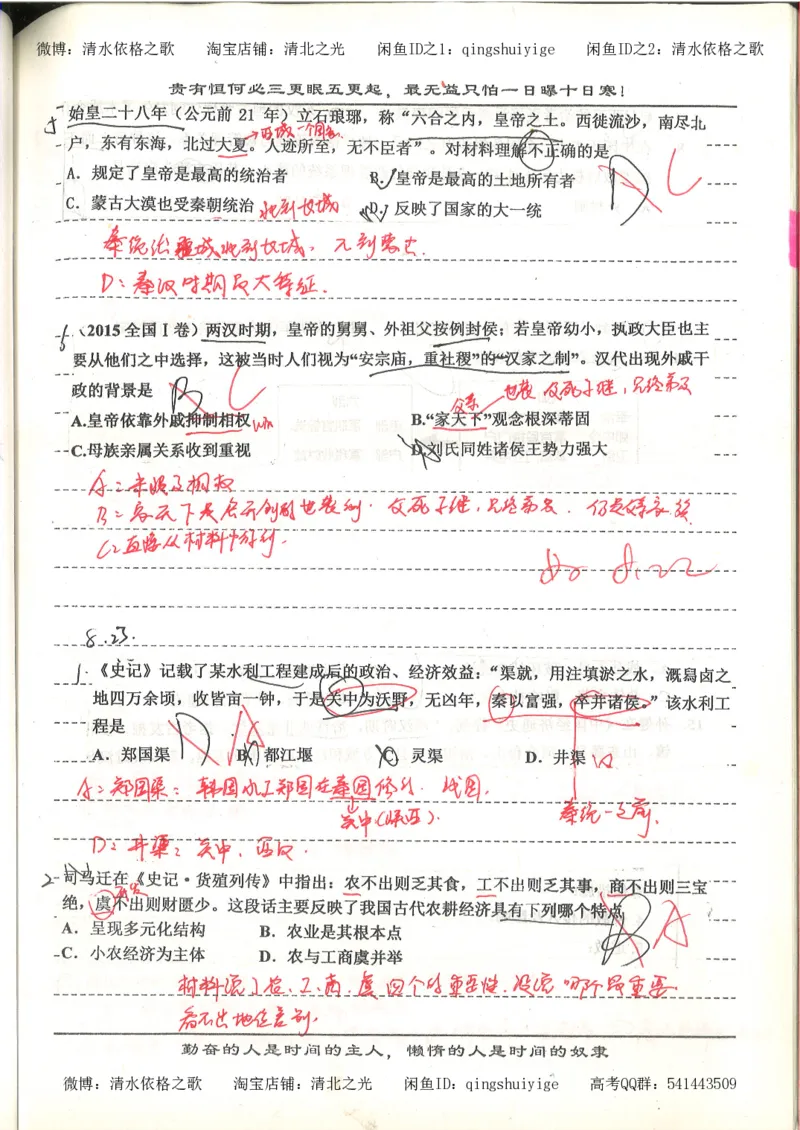 微博：清水依格之歌 淘宝店铺：清北之光 闲鱼ID之1：qingshuiyige 闲鱼ID之2：清水依格之歌
贵有恒何必三更眠五更起，最无益只怕一日曝十日寒！
始皇二十八年（公元前 21 年）立石琅琊，称“六合之内，皇帝之土。西徙流沙，南尽北
户，东有东海，北过大夏。人迹所至，无不臣者”。对材料理解不正确的是
D C
A．规定了皇帝是最高的统治者 B．皇帝是最高的土地所有者
C．蒙古大漠也受秦朝统治 北到长城 D．反映了国家的大一统
秦统治疆域北到长城，不到蒙古.
D：秦汉时期后大特征.
5、（2015全国Ⅰ卷）两汉时期，皇帝的舅舅、外祖父按例封侯；若皇帝幼小，执政大臣也主
要从他们之中选择，这被当时人们视为“安宗庙，重社稷”的“汉家之制”。汉代出现外戚干
政的背景是 B C 世袭，父死子继，兄终弟及
A.皇帝依靠外戚抑制相权 B.“家天下”观念根深蒂固
C.母族亲属关系收到重视 D.刘氏同姓诸侯王势力强大
A：未提及相权
B：家天下是启开创的世袭制. 父死子继，兄终弟及.
C：直接从材料中得到.
8.22
8.23.
1.《史记》记载了某水利工程建成后的政治、经济效益：“渠就，用注填淤之水，溉舄卤之
地四万余顷，收皆亩一钟，于是关中为沃野，无凶年，秦以富强，卒并诸侯。”该水利工
程是 D A
A．郑国渠 B．都江堰 C．灵渠 D．井渠 汉
A：郑国渠：韩国水工郑国在秦国修引. 战国.
关中(陕西). 秦统一之前.
D：井渠：关中，西汉.
2.司马迁在《史记·货殖列传》中指出：农不出则乏其食，工不出则乏其事，商不出则三宝
绝，虞不出则财匮少。这段话主要反映了我国古代农耕经济具有下列哪个特点
B A
A．呈现多元化结构 B．农业是其根本点
C．小农经济为主体 D．农与工商虞并举
材料说了农、工、商、虞四个的重要性，没说哪个最重要
看不出地位差别.
勤奋的人是时间的主人，懒惰的人是时间的奴隶
微博：清水依格之歌 淘宝店铺：清北之光 闲鱼ID：qingshuiyige 高考QQ群：541443509